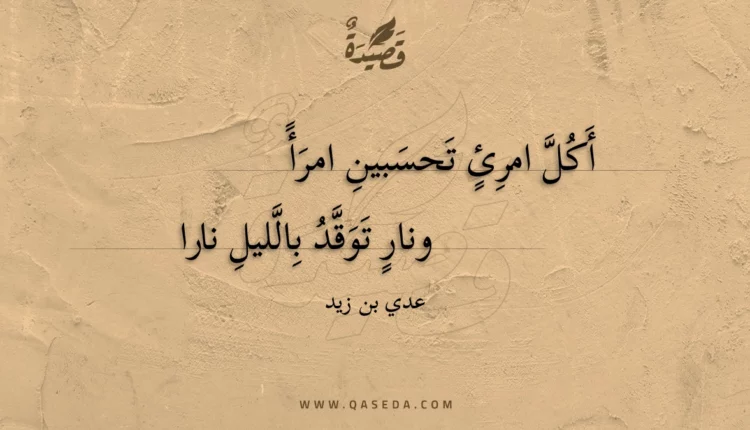 قَصِيدَةٌ
أَكُلَّ امرِئٍ تَحسَبينِ امرَأً
ونارٍ تَوَقَّدُ بِالَّليلِ نارا
عدي بن زيد
WWW.QASEDA.COM